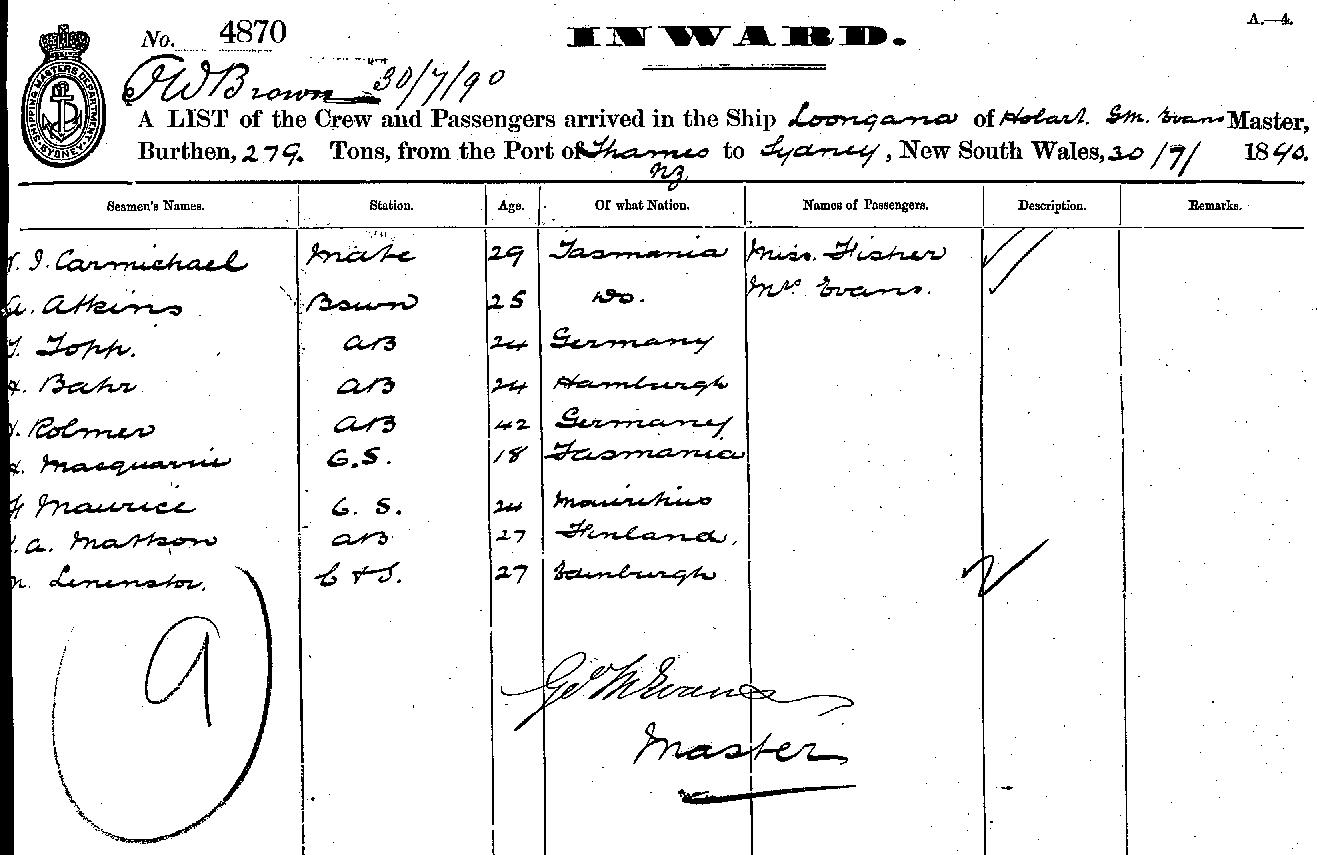 A.—4.
No. 4870 INWARD.
SHIPPING MASTERS DEPARTMENT SYDNEY
JW Brown 30/7/90
A LIST of the Crew and Passengers arrived in the Ship Loongana of Hobart. GM. Evans Master,
Burthen, 279. Tons, from the Port of Thames to Sydney, New South Wales, 30/7/ 1890.
NZ
Seamen's Names. Station. Age. Of what Nation. Names of Passengers. Description. Remarks.
I. Carmichael Mate 29 Tasmania Miss. Fisher
A. Atkins Bswn 25 Do. Mrs Evans.
Topp. AB 24 Germany
H. Bahr AB 24 Hamburgh
Rolmer AB 42 Germany
Macquarrie O.S. 18 Tasmania
Maurice O. S. 24 Mauritius
A. Matson AB 27 Finland.
C & S. 27 Edinburgh
9
2
Geo M Evans
Master